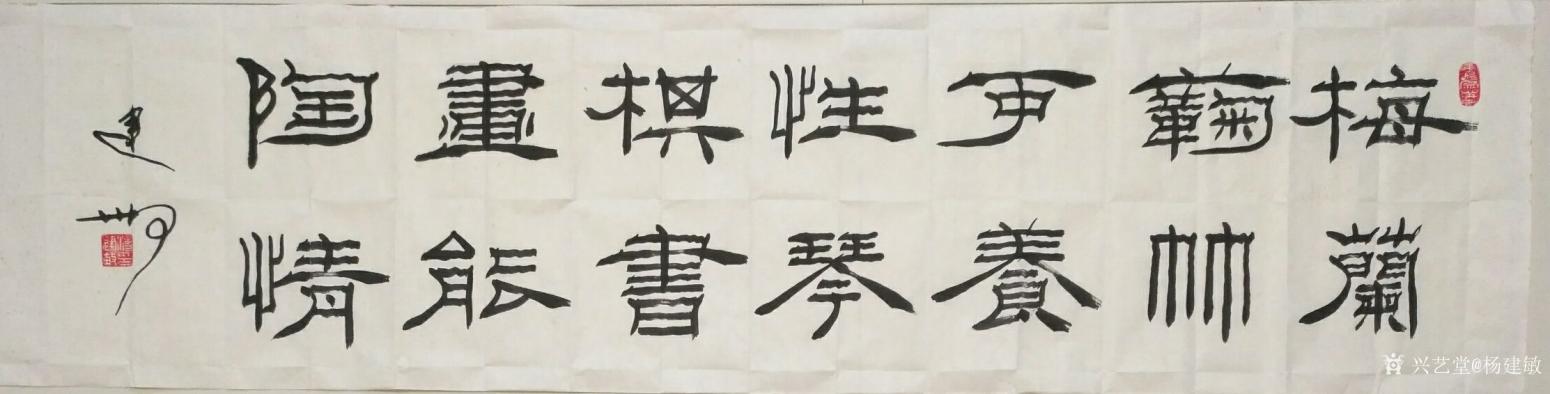 梅蘭
鞠竹
可養
性琴
棋書
畫能
陶情
建敏
兴艺堂@杨建敏